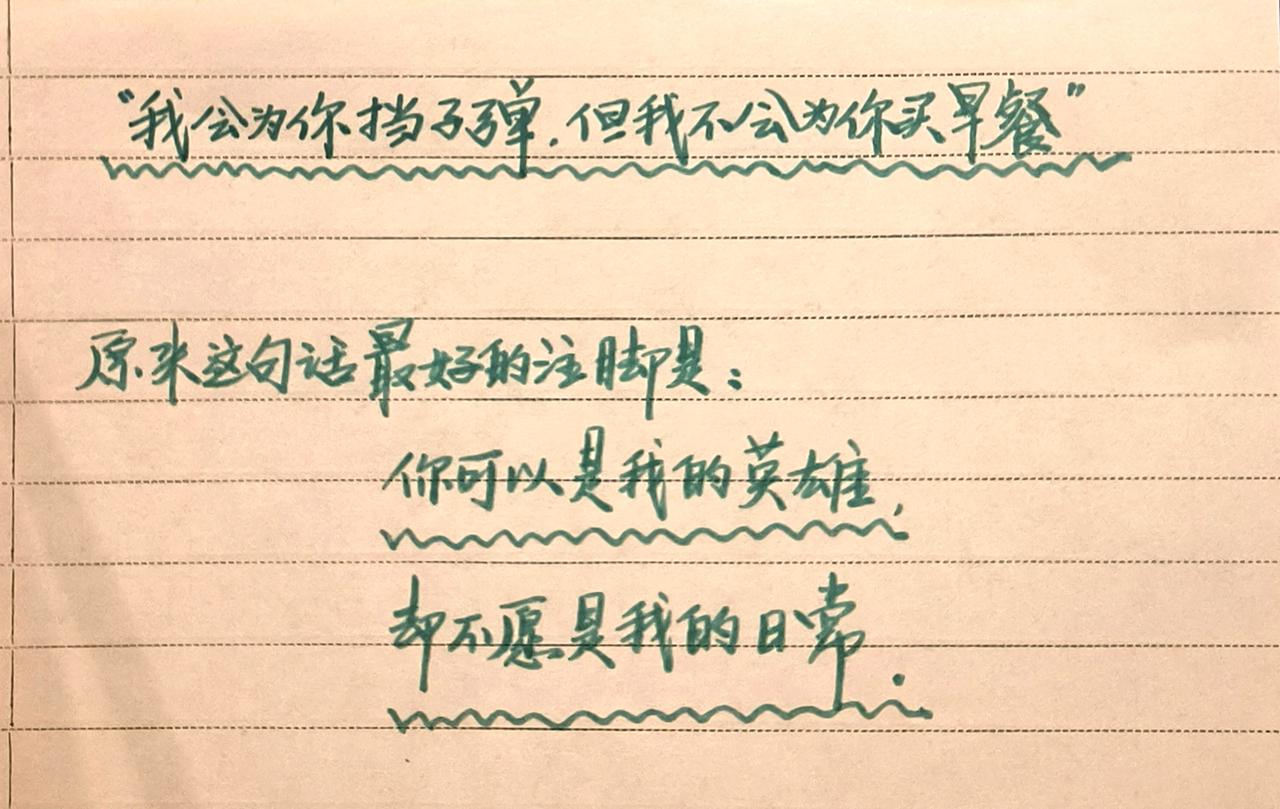 “我会为你挡子弹.但我不会为你买早餐”
原来这句话最好的注脚是：
你可以是我的英雄,
却不愿是我的日常.